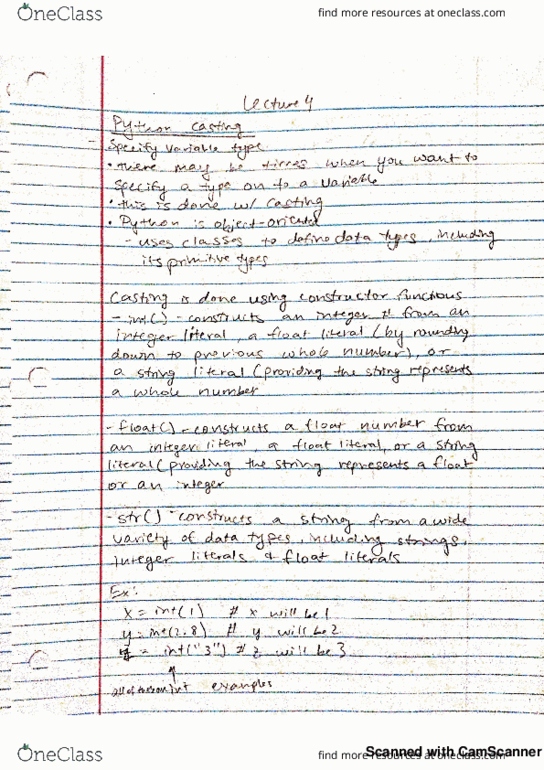 OneClass
find more resources at oneclass.com
Lecture 4
Python Casting
- Specify variable type
• there may be times when you want to
specify a type on to a variable
• this is done w/ casting
• Python is object-oriented
- uses classes to define data types, including
its primitive types
Casting is done using constructor functions
- int() - constructs an integer # from an
integer literal, a float literal (by rounding
down to previous whole number), or
a string literal (providing the string represents
a whole number
- float() - constructs a float number from
an integer literal, a float literal, or a string
literal (providing the string represents a float
or an integer
- str() - constructs a string from a wide
variety of data types, including strings,
integer literals & float literals
Ex:
x = int(1) # x will be 1
y = int(2.8) # y will be 2
z = int("3") # z will be 3
all of these are int examples
OneClass
find more resources at oneclass.com
Scanned with CamScanner